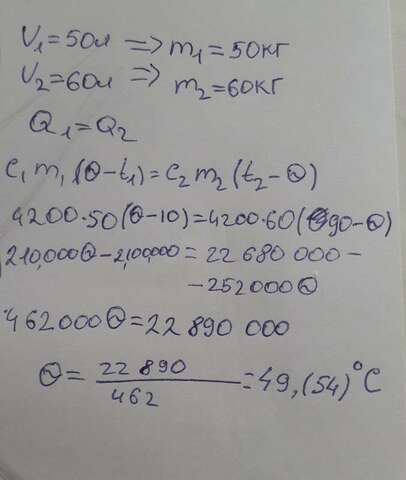 V₁=50л => m₁=50кг
V₂=60л => m₂=60кг
Q₁=Q₂
c₁m₁(Θ-t₁)=c₂m₂(t₂-Θ)
4200·50(Θ-10)=4200·60(90-Θ)
210,000Θ-2,100,000=22 680 000-
-252000Θ
462000Θ=22 890 000
Θ=22 890/462=49,(54)°C